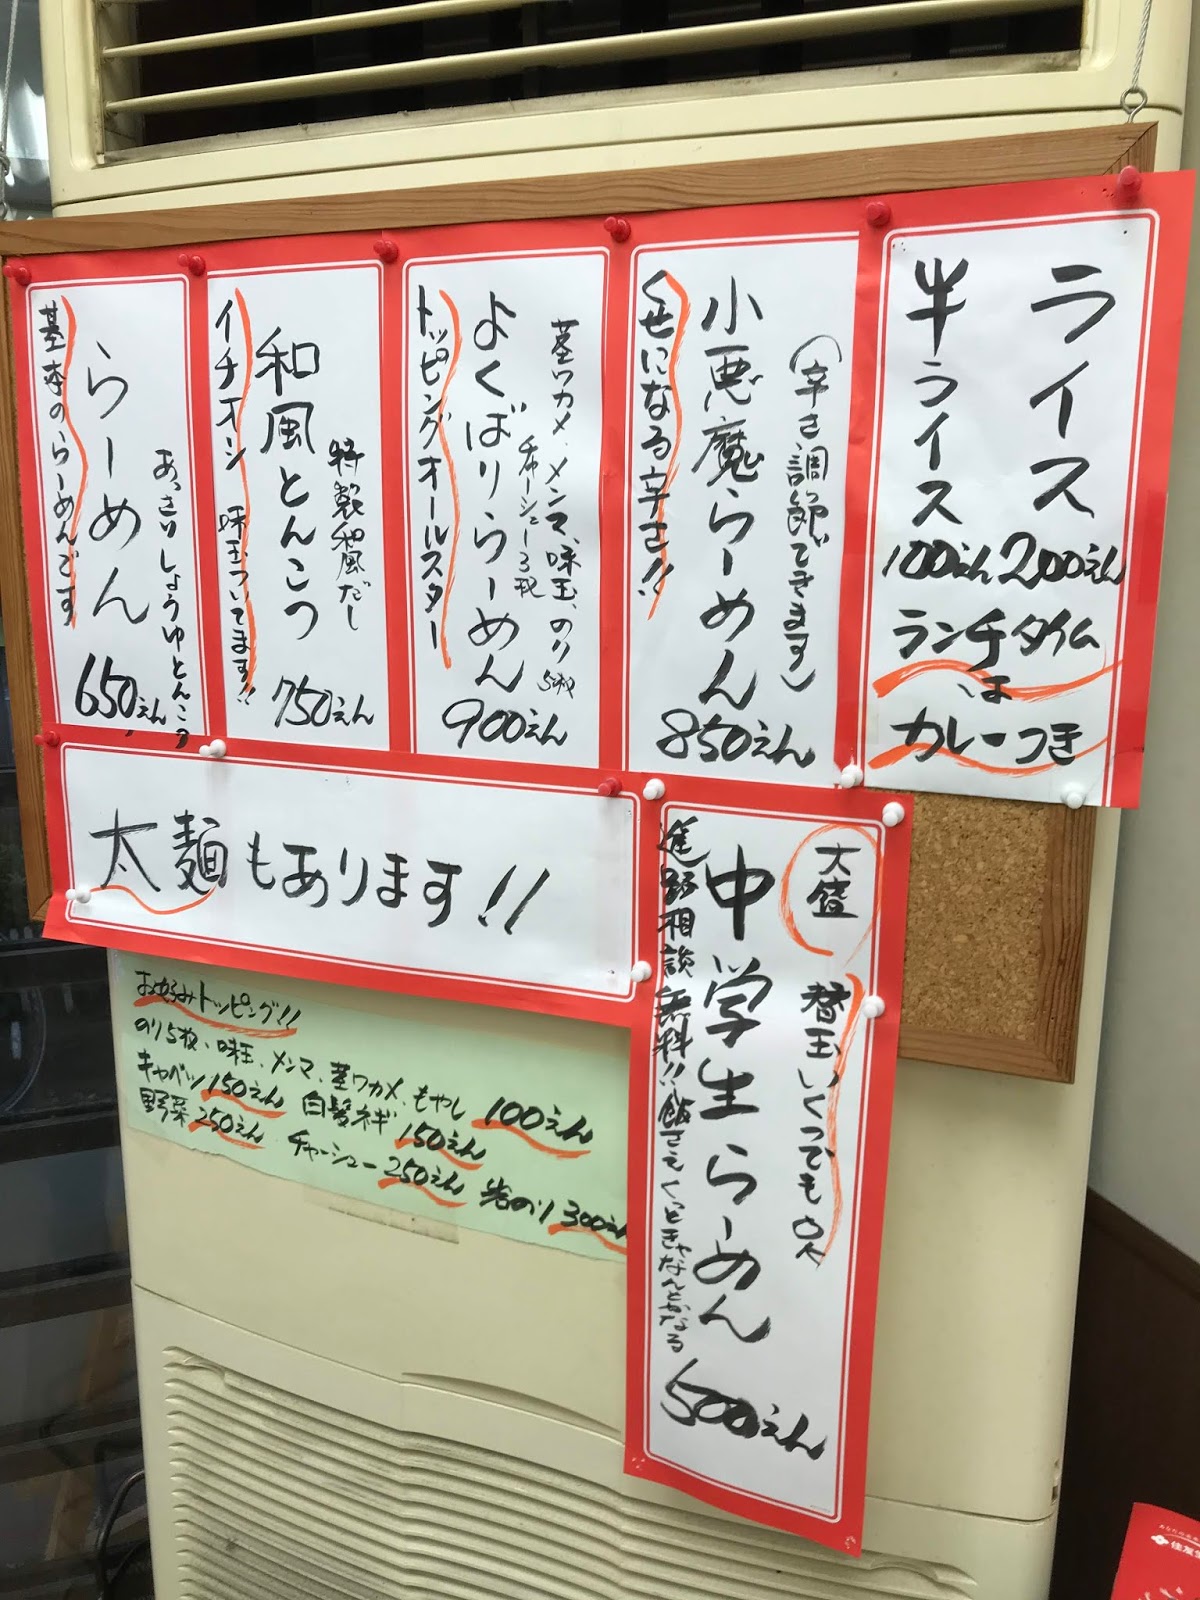 ライス
200えん
半ライス
100えん
ランチタイム
は
カレーつき
(辛さ調節できます)
小悪魔らーめん
850えん
くせになる辛さ!!
茎ワカメ、メンマ、味玉、のり5枚
チャーシュー3枚
よくばりらーめん
900えん
トッピングオールスター
特製和風だし
和風とんこつ
750えん
イチオシ 味玉ついてます!!
あっさりしょうゆとんこつ
らーめん
650えん
基本のらーめんです
太麺もあります!!
大盛
替玉いくつでもOK
中学生らーめん
500えん
進路相談無料!!飯さえくっときゃなんとかなる
お好みトッピング!!
のり5枚、味玉、メンマ、茎ワカメ、もやし 100えん
キャベツ 150えん 白髪ネギ 150えん
野菜 250えん チャーシュー 250えん 岩のり 300えん